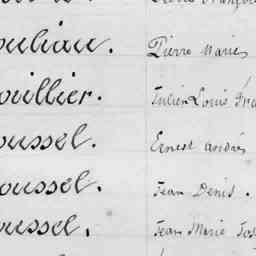 ouliau. Pierre Marie
ouillier. Julien Louis Fra
oussel. Ernest André
oussel. Jean Denis.
oussel. Jean Marie Jos